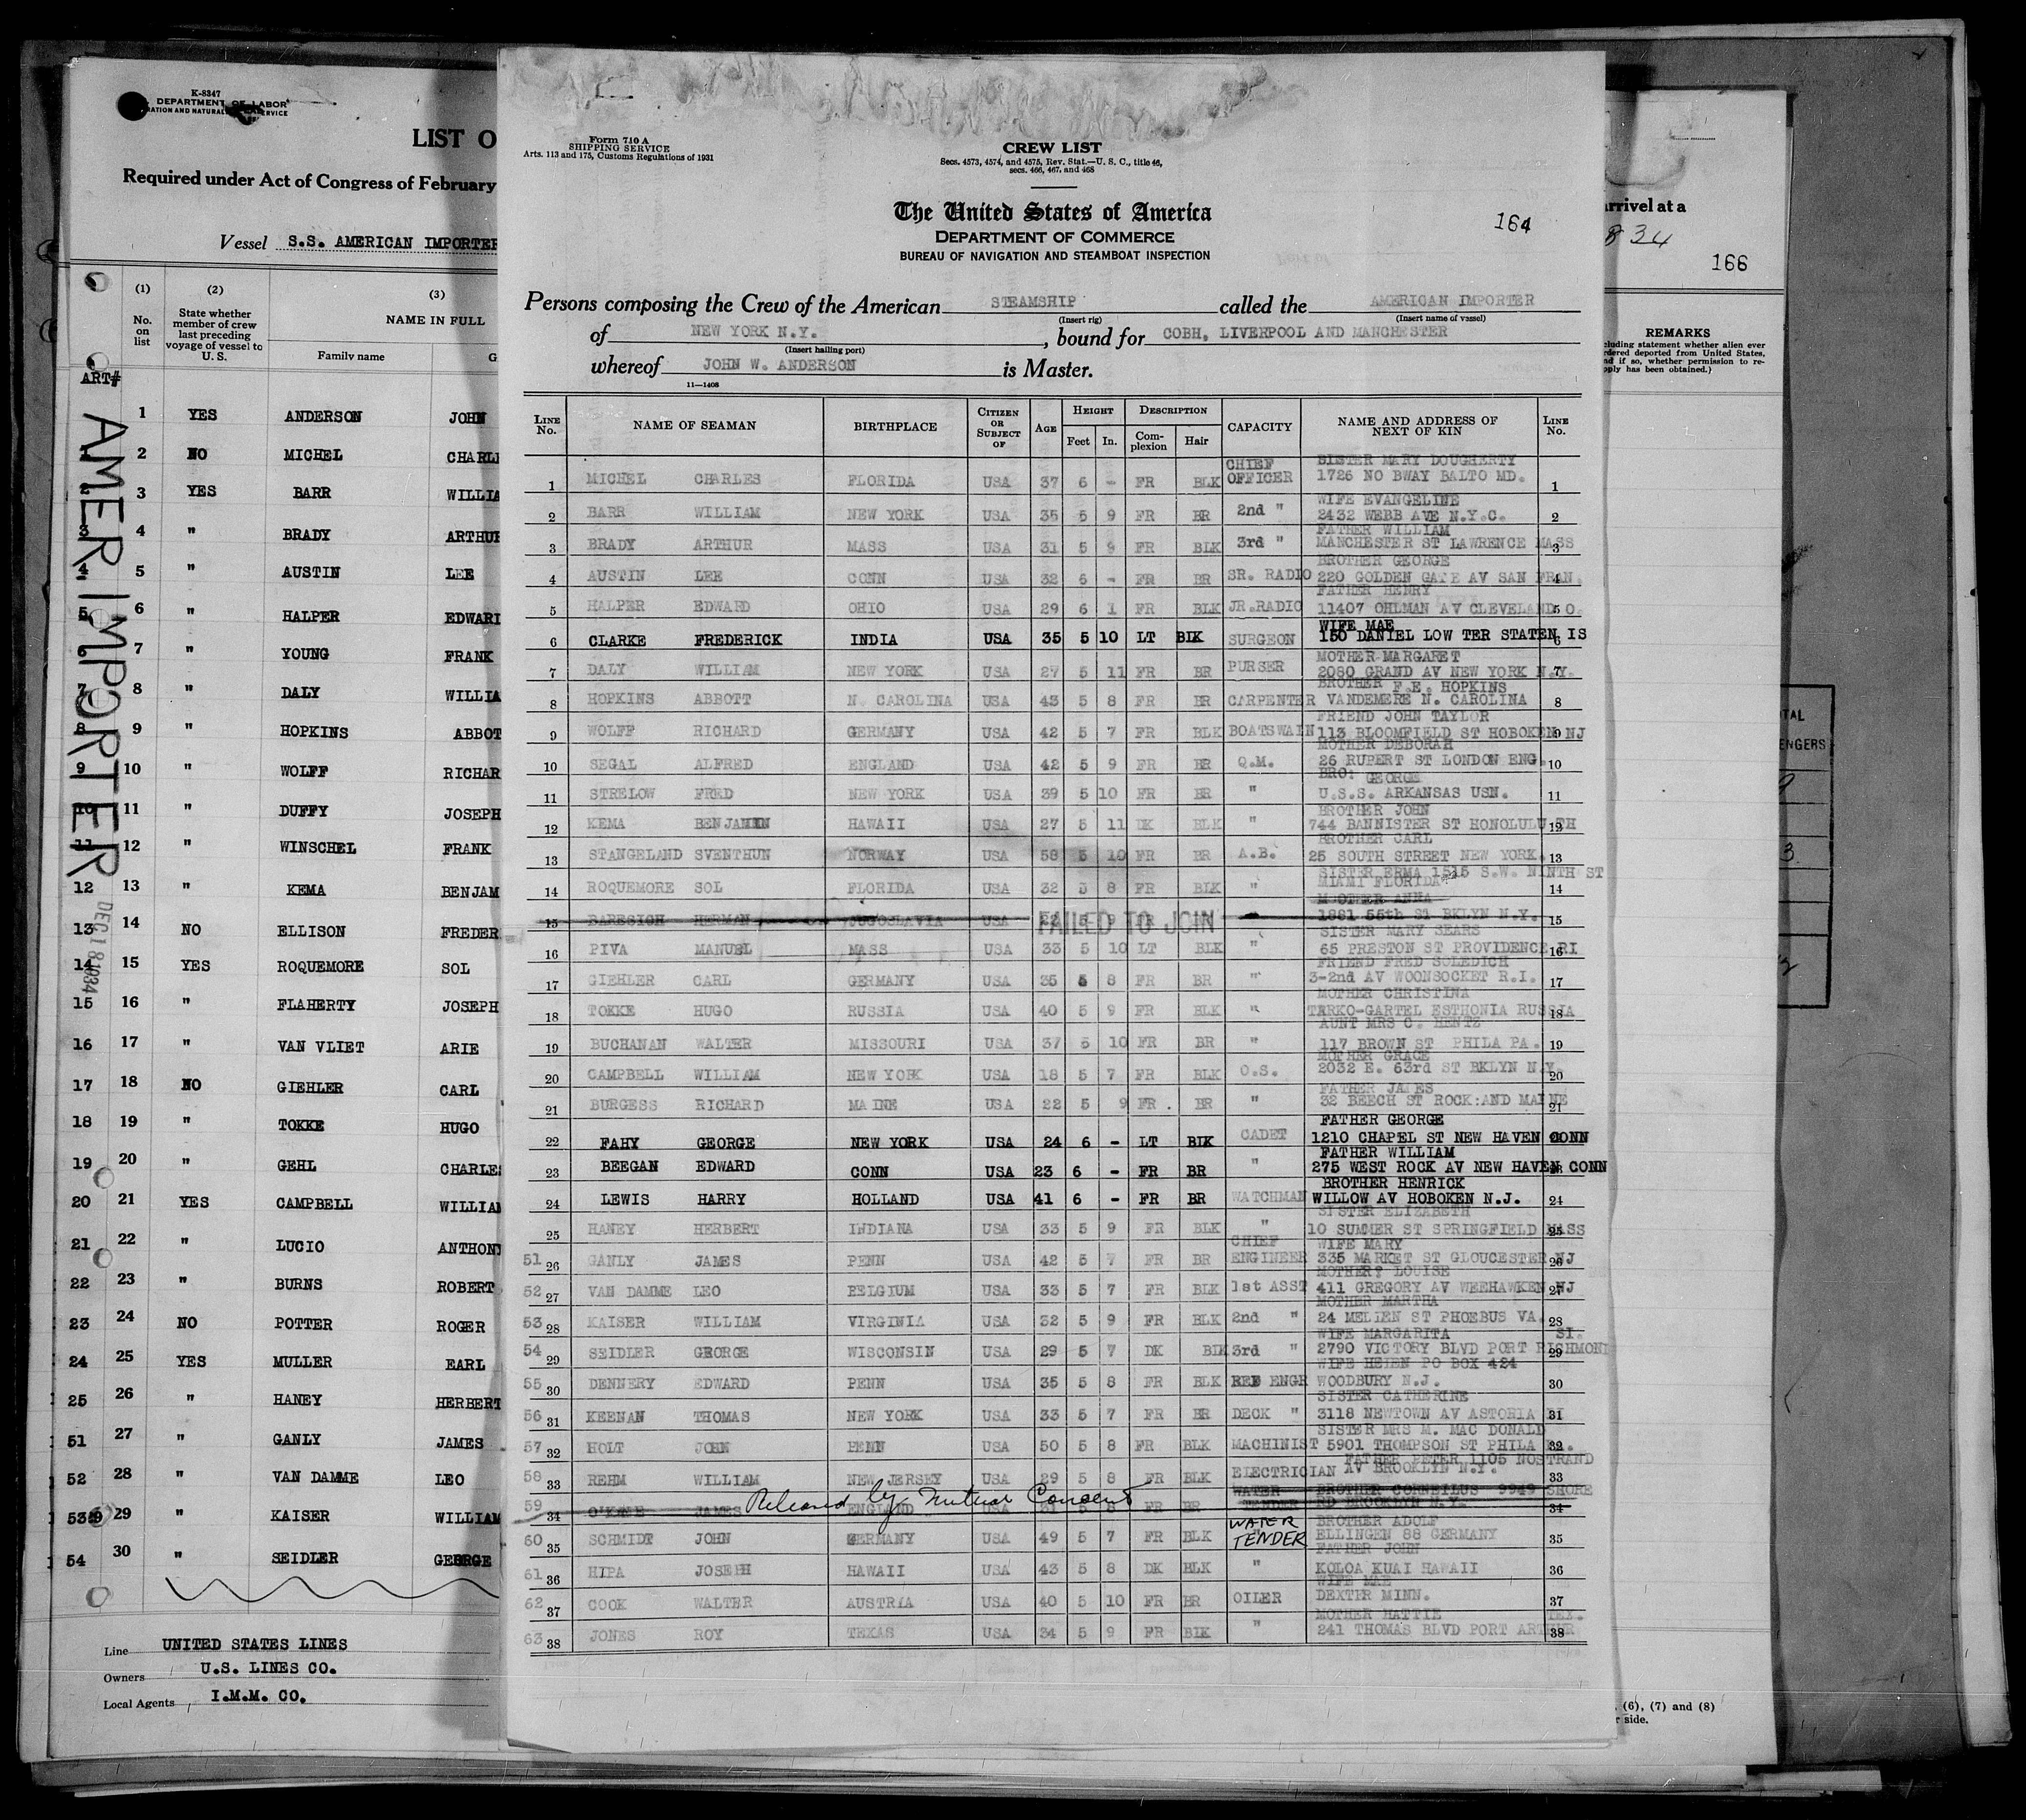 K-8347
DEPARTMENT OF LABOR
LIST O
Required under Act of Congress of February
Vessel S.S. AMERICAN IMPORTER
(1) (2) (3)
No. on list
State whether member of crew last preceding voyage of vessel to U.S.
NAME IN FULL
Family name G
ART#
AMER. IMPORTER
DEC 18 1934
1 YES ANDERSON JOHN
1 2 NO MICHEL CHARLE
2 3 YES BARR WILLIA
3 4 " BRADY ARTHUR
4 5 " AUSTIN LEE
5 6 " HALPER EDWARI
6 7 " YOUNG FRANK
7 8 " DALY WILLIA
8 9 " HOPKINS ABBOT
9 10 " WOLFF RICHAR
10 11 " DUFFY JOSEPH
11 12 " WINSCHEL FRANK
12 13 " KEMA BENJAM
13 14 NO ELLISON FREDER
14 15 YES ROQUEMORE SOL
15 16 " FLAHERTY JOSEPH
16 17 " VAN VLIET ARIE
17 18 NO GIEHLER CARL
18 19 " TOKKE HUGO
19 20 " GEHL CHARLES
20 21 YES CAMPBELL WILLIAM
21 22 " LUCIO ANTHONY
22 23 " BURNS ROBERT
23 24 NO POTTER ROGER
24 25 YES MULLER EARL
25 26 " HANEY HERBERT
51 27 " GANLY JAMES
52 28 " VAN DAMME LEO
53 29 " KAISER WILLIAM
54 30 " SEIDLER GEORGE
Line UNITED STATES LINES
Owners U.S. LINES CO.
Local Agents I.M.M. CO.
Form 710 A
SHIPPING SERVICE
Arts. 113 and 175, Customs Regulations of 1931
CREW LIST
Secs. 4573, 4574, and 4575, Rev. Stat.—U. S. C., title 46,
secs. 466, 467, and 468
The United States of America
DEPARTMENT OF COMMERCE
BUREAU OF NAVIGATION AND STEAMBOAT INSPECTION
164
Persons composing the Crew of the American STEAMSHIP called the AMERICAN IMPORTER
(Insert rig) (Insert name of vessel)
of NEW YORK N.Y. , bound for COBH, LIVERPOOL AND MANCHESTER
(Insert hailing port)
whereof JOHN W. ANDERSON is Master.
11—1408
LINE No. NAME OF SEAMAN BIRTHPLACE CITIZEN OR SUBJECT OF AGE HEIGHT Feet In. DESCRIPTION Complexion Hair CAPACITY NAME AND ADDRESS OF NEXT OF KIN LINE No.
CHIEF SISTER MARY DOUGHERTY
1 MICHEL CHARLES FLORIDA USA 37 6 - FR BLK OFFICER 1726 NO BWAY BALTO MD. 1
WIFE EVANGELINE
2 BARR WILLIAM NEW YORK USA 35 5 9 FR BR 2nd " 2432 WEBB AVE N.Y.C. 2
FATHER WILLIAM
3 BRADY ARTHUR MASS USA 31 5 9 FR BLK 3rd " MANCHESTER ST LAWRENCE MASS 3
BROTHER GEORGE
4 AUSTIN LEE CONN USA 32 6 - FR BR SR. RADIO 220 GOLDEN GATE AV SAN FRAN. 4
FATHER HENRY
5 HALPER EDWARD OHIO USA 29 6 1 FR BLK JR.RADIO 11407 OHLMAN AV CLEVELAND O. 5
WIFE MAE
6 CLARKE FREDERICK INDIA USA 35 5 10 LT BIK SURGEON 150 DANIEL LOW TER STATEN IS 6
MOTHER MARGARET
7 DALY WILLIAM NEW YORK USA 27 5 11 FR BR PURSER 2080 GRAND AV NEW YORK N.Y. 7
BROTHER F.E. HOPKINS
8 HOPKINS ABBOTT N. CAROLINA USA 43 5 8 FR BR CARPENTER VANDEMERE N. CAROLINA 8
FRIEND JOHN TAYLOR
9 WOLFF RICHARD GERMANY USA 42 5 7 FR BLK BOATSWAIN 113 BLOOMFIELD ST HOBOKEN NJ 9
MOTHER DEBORAH
10 SEGAL ALFRED ENGLAND USA 42 5 9 FR BR Q.M. 26 RUPERT ST LONDON ENG. 10
BRO: GEORGE
11 STRELOW FRED NEW YORK USA 39 5 10 FR BR " U.S.S. ARKANSAS USN. 11
BROTHER JOHN
12 KEMA BENJAMIN HAWAII USA 27 5 11 DK BLK " 744 BANNISTER ST HONOLULU TH 12
BROTHER CARL
13 STANGELAND SVENTHUN NORWAY USA 58 5 10 FR BR A.B. 25 SOUTH STREET NEW YORK. 13
SISTER ERMA 1515 S.W. NINTH ST
14 ROQUEMORE SOL FLORIDA USA 32 5 8 FR BLK " MIAMI FLORIDA 14
MOTHER ANNA
15 BARESICH HERMAN JUGOSLAVIA USA 22 5 9 FAILED TO JOIN 1881 55th ST BKLYN N.Y. 15
SISTER MARY SEARS
16 PIVA MANUEL MASS USA 33 5 10 LT BLK " 65 PRESTON ST PROVIDENCE RI 16
FRIEND FRED SOLEDICH
17 GIEHLER CARL GERMANY USA 35 5 8 FR BR " 3-2nd AV WOONSOCKET R.I. 17
MOTHER CHRISTINA
18 TOKKE HUGO RUSSIA USA 40 5 9 FR BLK " TERKO-GARTEL ESTHONIA RUSSIA 18
AUNT MRS C. HENTZ
19 BUCHANAN WALTER MISSOURI USA 37 5 10 FR BR " 117 BROWN ST PHILA PA. 19
MOTHER GRACE
20 CAMPBELL WILLIAM NEW YORK USA 18 5 7 FR BLK O.S. 2032 E. 63rd ST BKLYN N.Y. 20
FATHER JAMES
21 BURGESS RICHARD MAINE USA 22 5 9 FR. BR " 32 BEECH ST ROCK:AND MAINE 21
FATHER GEORGE
22 FAHY GEORGE NEW YORK USA 24 6 - LT BIK CADET 1210 CHAPEL ST NEW HAVEN CONN
FATHER WILLIAM
23 BEEGAN EDWARD CONN USA 23 6 - FR BR " 275 WEST ROCK AV NEW HAVEN CONN
BROTHER HENRICK
24 LEWIS HARRY HOLLAND USA 41 6 - FR BR WATCHMAN WILLOW AV HOBOKEN N.J. 24
SISTER ELIZABETH
25 HANEY HERBERT INDIANA USA 33 5 9 FR BLK " 10 SUMMER ST SPRINGFIELD MASS 25
CHIEF WIFE MARY
51 26 GANLY JAMES PENN USA 42 5 7 FR BR ENGINEER 335 MARKET ST GLOUCESTER NJ 26
MOTHER: LOUISE
52 27 VAN DAMME LEO BELGIUM USA 33 5 7 FR BLK 1st ASST 411 GREGORY AV WEEHAWKEN NJ 27
MOTHER MARTHA
53 28 KAISER WILLIAM VIRGINIA USA 32 5 9 FR BLK 2nd " 24 MELLEN ST PHOEBUS VA. 28
WIFE MARGARITA SI.
54 29 SEIDLER GEORGE WISCONSIN USA 29 5 7 DK BIK 3rd " 2790 VICTORY BLVD PORT RICHMOND 29
WIFE HELEN PO BOX 424
55 30 DENNERY EDWARD PENN USA 35 5 8 FR BLK REF ENGR WOODBURY N.J. 30
SISTER CATHERINE
56 31 KEENAN THOMAS NEW YORK USA 33 5 7 FR BR DECK " 3118 NEWTOWN AV ASTORIA LI 31
SISTER MRS M. MAC DONALD
57 32 HOLT JOHN PENN USA 50 5 8 FR BLK MACHINIST 5901 THOMPSON ST PHILA PA. 32
FATHER PETER 1105 NOSTRAND
58 33 REHM WILLIAM NEW JERSEY USA 29 5 8 FR BLK ELECTRICIAN AV BROOKLYN N.Y. 33
Released by Mutual Consent
WATER BROTHER CORNEILUS 9949 SHORE
59 34 O'KANE JAMES ENGLAND USA 31 5 8 FR BR TENDER RD BROOKLYN N.Y. 34
WATER BROTHER ADOLF
60 35 SCHMIDT JOHN GERMANY USA 49 5 7 FR BLK TENDER ELLINGEN 88 GERMANY 35
FATHER JOHN
61 36 HIPA JOSEPH HAWAII USA 43 5 8 DK BLK " KOLOA KUAI HAWAII 36
WIFE MAE
62 37 COOK WALTER AUSTRIA USA 40 5 10 FR BR OILER DEXTER MINN. 37
MOTHER HATTIE TEX.
63 38 JONES ROY TEXAS USA 34 5 9 FR BIK " 241 THOMAS BLVD PORT ARTHUR 38
arrivel at a
834
166
REMARKS
cluding statement whether alien ever
rdered deported from United States,
nd if so, whether permission to re-
pply has been obtained.)
TAL
ENGERS
3
, (6), (7) and (8)
r side.